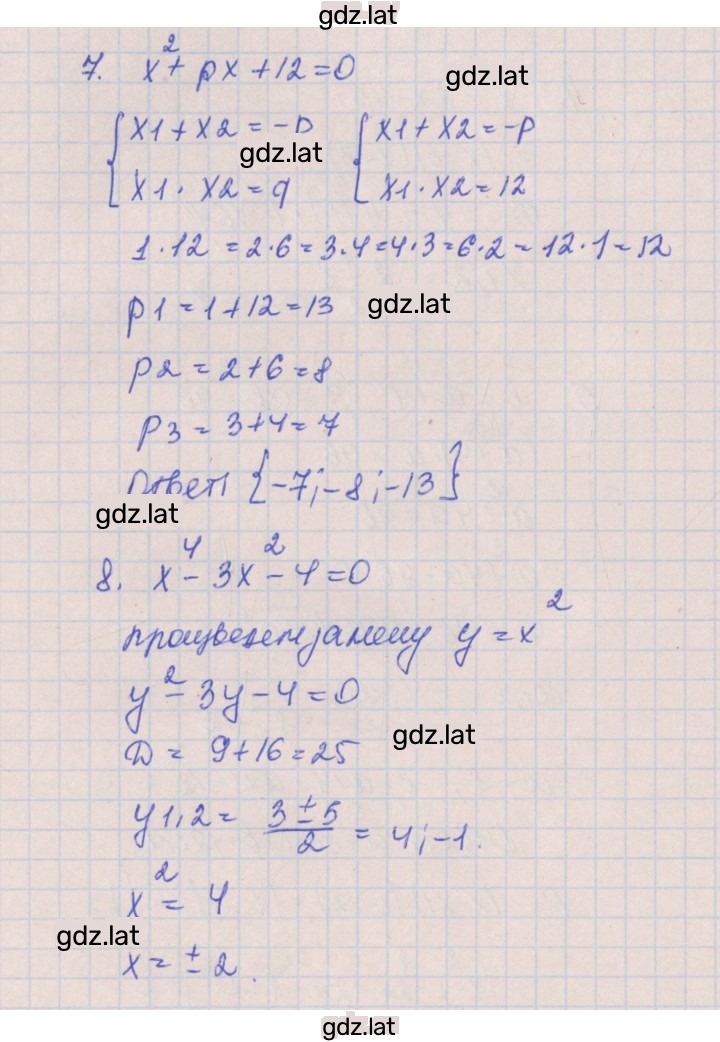 gdz.lat
7. x² + px + 12 = 0
gdz.lat
{ x1 + x2 = -p { x1 + x2 = -p
gdz.lat
x1 · x2 = q x1 · x2 = 12
1 · 12 = 2 · 6 = 3 · 4 = 4 · 3 = 6 · 2 = 12 · 1 = 12
p1 = 1 + 12 = 13
gdz.lat
p2 = 2 + 6 = 8
p3 = 3 + 4 = 7
Ответ {-7; -8; -13}
gdz.lat
8. x⁴ - 3x² - 4 = 0
произведем замену y = x²
y² - 3y - 4 = 0
gdz.lat
D = 9 + 16 = 25
y1,2 = (3 ± 5)/2 = 4; -1.
x² = 4
gdz.lat
x = ± 2.
gdz.lat